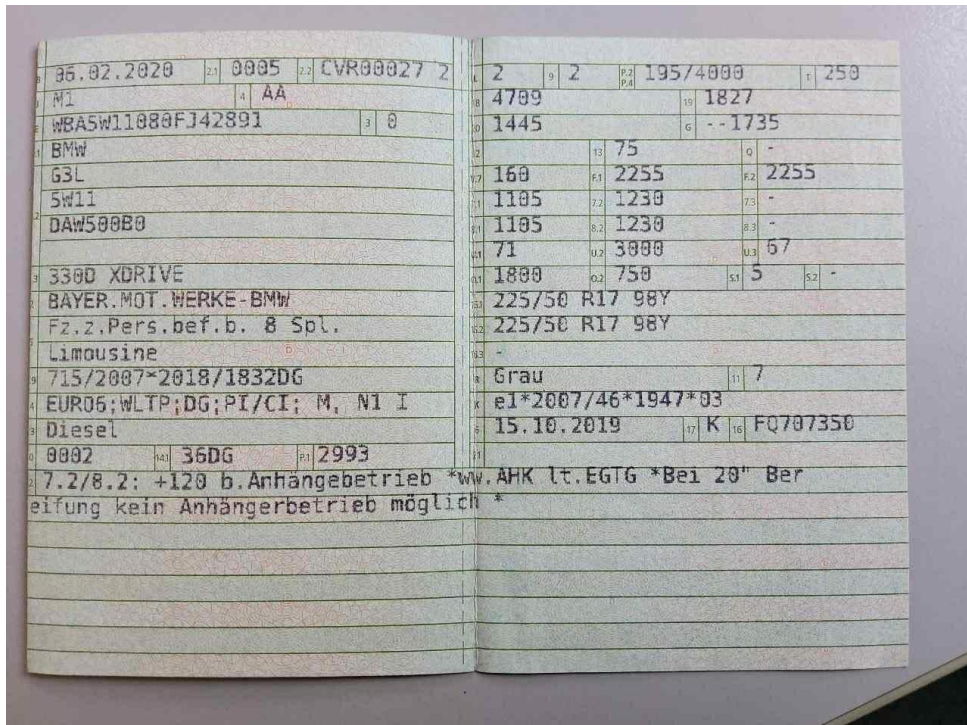 06.02.2020 2.1 0005 2.2 CVR00027 2
M1 4 AA
WBA5W11080FJ42891 3 0
BMW
G3L
5W11
DAW500B0
330D XDRIVE
BAYER.MOT.WERKE-BMW
Fz.z.Pers.bef.b. 8 Spl.
Limousine
715/2007*2018/1832DG
EURO6;WLTP;DG;PI/CI; M, N1 I
Diesel
0002 14.1 36DG P.1 2993
L 2 9 2 P.2 P.4 195/4000 T 250
18 4709 19 1827
20 1445 G --1735
12 13 75 Q -
V.7 160 F.1 2255 F.2 2255
7.1 1105 7.2 1230 7.3 -
8.1 1105 8.2 1230 8.3 -
U.1 71 U.2 3000 U.3 67
O.1 1800 O.2 750 S.1 5 S.2 -
15.1 225/50 R17 98Y
15.2 225/50 R17 98Y
15.3 -
R Grau 11 7
K e1*2007/46*1947*03
6 15.10.2019 17 K 16 FQ707350
21
7.2/8.2: +120 b.Anhängebetrieb *ww.AHK lt.EGTG *Bei 20" Ber
eifung kein Anhängerbetrieb möglich *